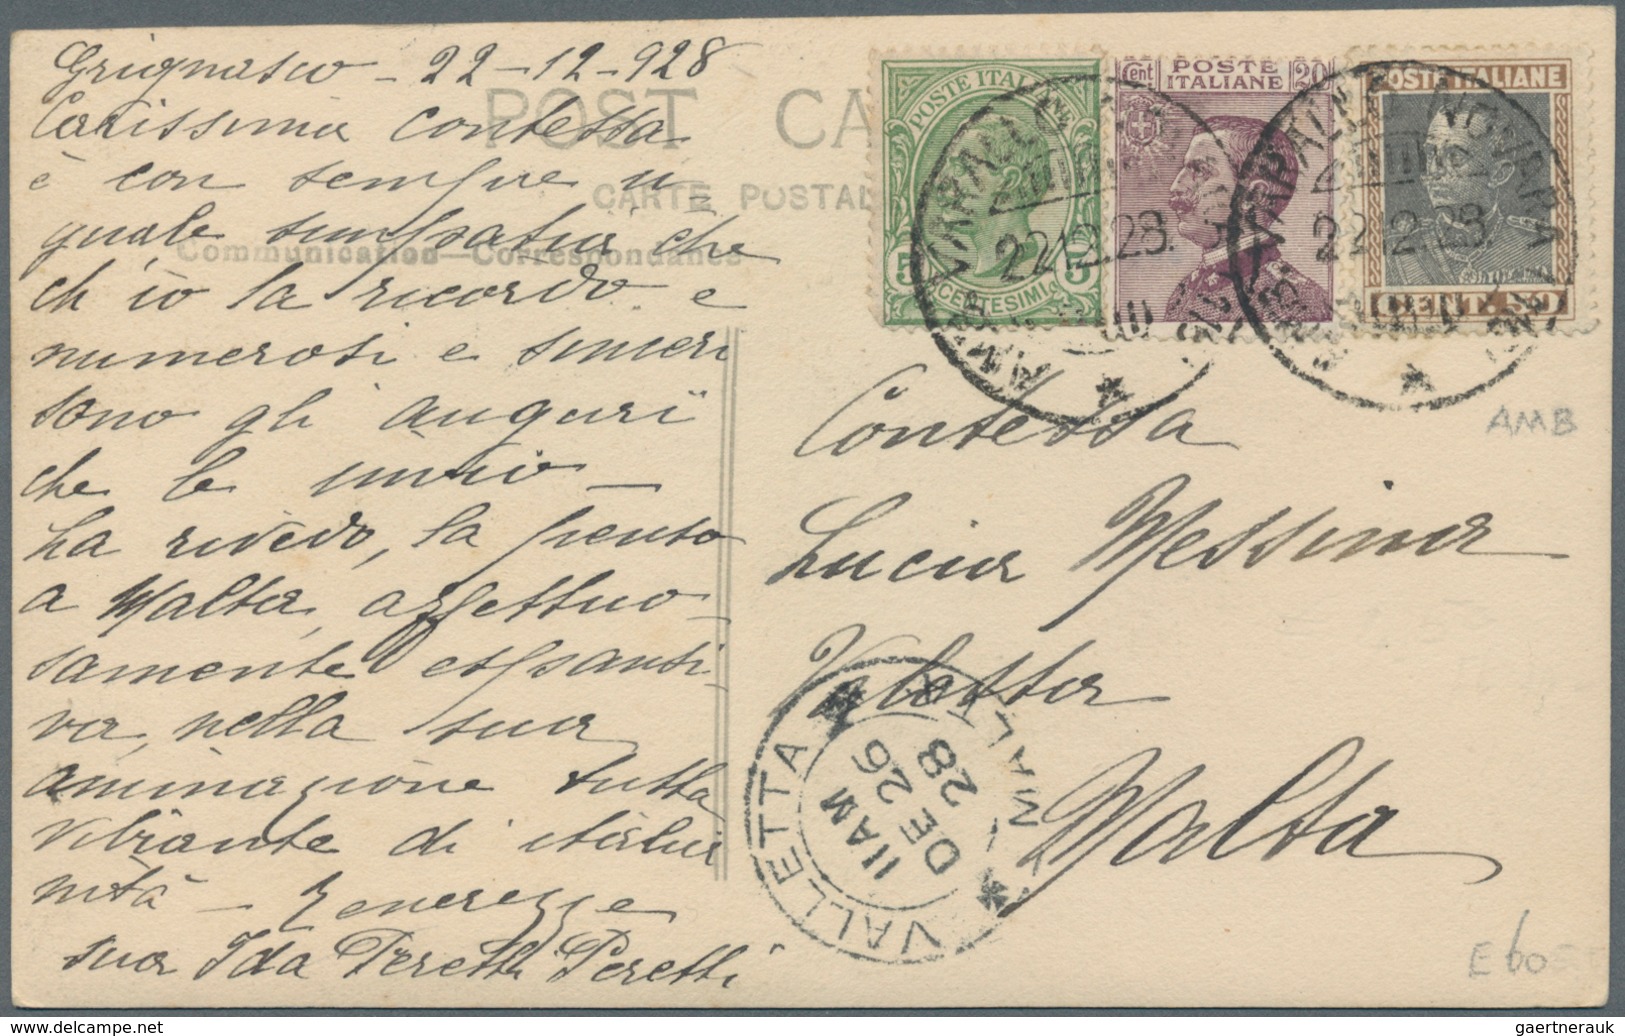 Grignasco - 22-12-928
Carissima Contessa
è con sempre u
guale simpatia che
ch'io la ricordo e
numerosi e sinceri
sono gli augurï
che le invio -
La rivedo, la penso
a Malta, affettuo
samente espansi-
va, nella sua
animazione tutta
vibrante di italia
nità - Tenerezze
sua Ida Peretti Peretti
POST CA
CARTE POSTAL
Communication—Correspondance
POSTE ITAL
5 5
CENTESIMI
Cent 20
POSTE
ITALIANE
POSTE ITALIANE
CENT. 50
VARALLO
22.12.28.
VARALLO NOVARA
22.12.28.
AMB
Contessa
Lucia Messina
Valetta
Malta
VALLETTA
MALTA
11 AM
DE 26
28
E 60
gaertnerauk©delcampe.net